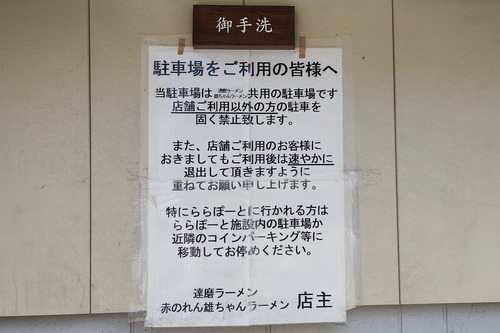 御手洗
駐車場をご利用の皆様へ
当駐車場は達磨ラーメン雄ちゃんラーメン共用の駐車場です
店舗ご利用以外の方の駐車を
固く禁止致します。
また、店舗ご利用のお客様に
おきましてもご利用後は速やかに
退出して頂きますように
重ねてお願い申し上げます。
特にららぽーとに行かれる方は
ららぽーと施設内の駐車場か
近隣のコインパーキング等に
移動してお停めください。
達磨ラーメン
赤のれん雄ちゃんラーメン 店主